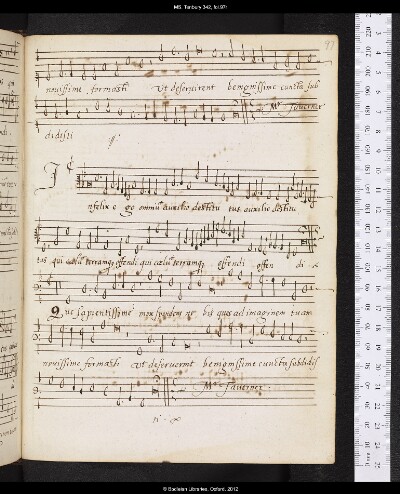 MS. Tenbury 342, fol.97r
97
novissime formasti Ut deservirent benignissime cuncta sub
Mr Taverner
didisti
Infelix e go omniũ auxilio destitu tus auxiliũ destitu
tus qui cœlũ terramq; offendi qui cœlũ terramq; offendi offen di
Que sapientissime
bis que ad imaginem tuam
novissime formasti ut deservirent benignissime cuncta subdidis
Mr Taverner
© Bodleian Libraries, Oxford, 2012